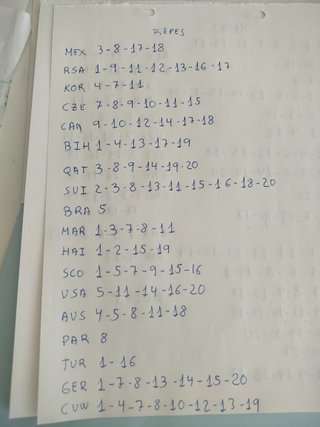 REPES
MEX 3-8-17-18
RSA 1-9-11-12-13-16-17
KOR 4-7-11
CZE 7-8-9-10-11-15
CAN 9-10-12-14-17-18
BIH 1-4-13-17-19
QAT 3-8-9-14-19-20
SUI 2-3-8-13-11-15-16-18-20
BRA 5
MAR 1-3-7-8-11
HAI 1-2-15-19
SCO 1-5-7-9-15-16
USA 5-11-14-16-20
AUS 4-5-8-11-18
PAR 8
TUR 1-16
GER 1-7-8-13-14-15-20
CUW 1-4-7-8-10-12-13-19